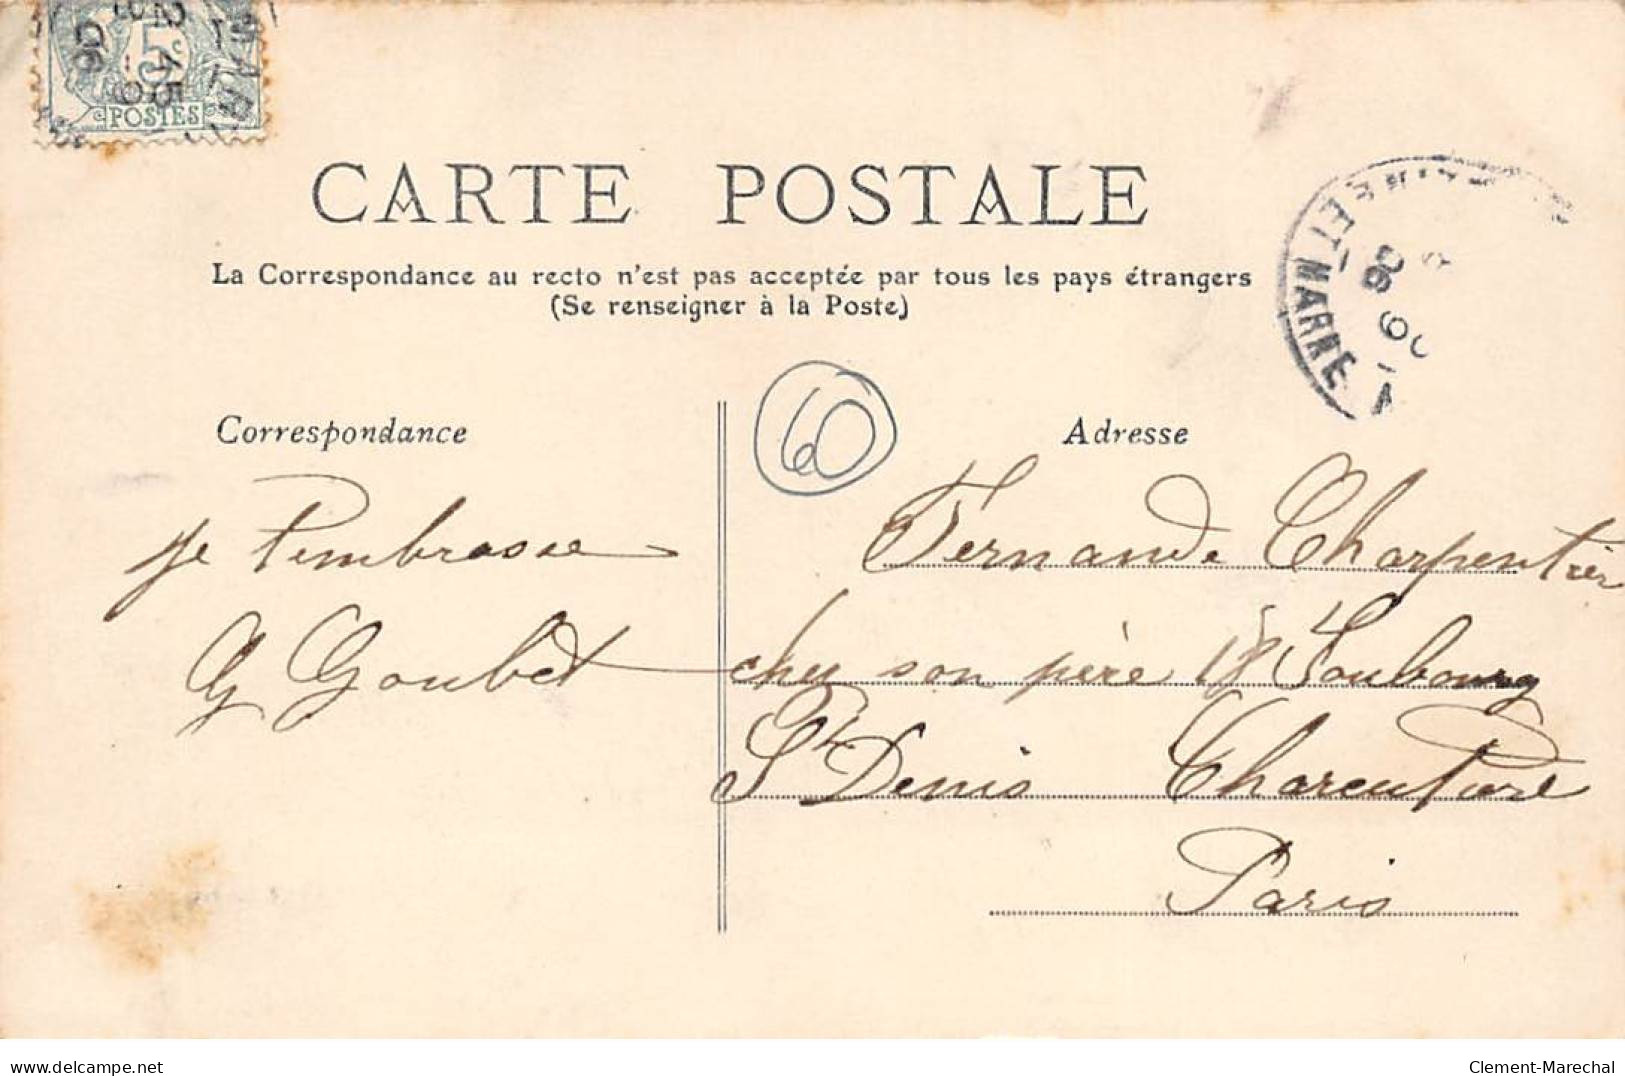 5c
POSTES
CARTE POSTALE
La Correspondance au recto n'est pas acceptée par tous les pays étrangers
(Se renseigner à la Poste)
ET MARNE
06
60
Correspondance
Adresse
je t'embrasse
G Goubet
Fernande Charpentier
chez son père 18 Foubourg
St Denis Charcutière
Paris
Clement-Marechal